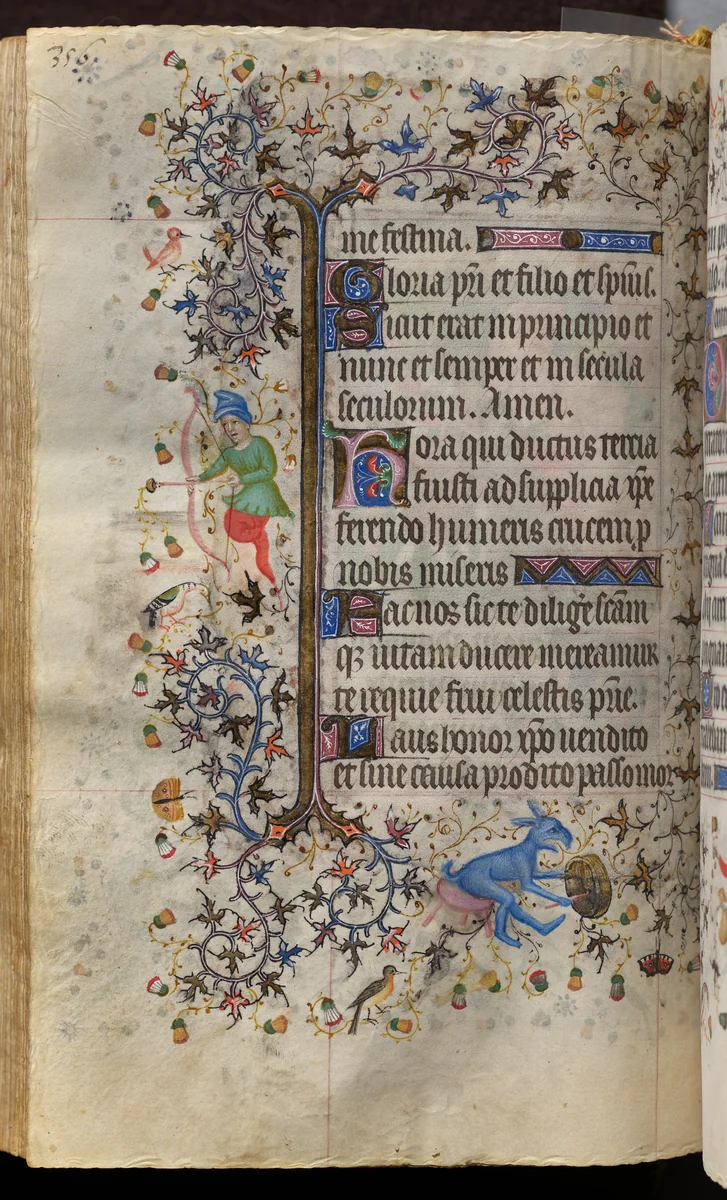 356
me festina.
Gloria pri et filio et spuis.
Sicut erat in principio et
nunc et semper et in secula
seculorum. Amen.
Hora qui ductus tercia
fuisti ad supplicia xpe
ferendo humeris crucem p
nobis miseris
Fac nos sic te dilige scam
qz uitam ducere mereamur
te requie frui celestis prie.
Laus honor xpo uendito
et sine causa prodito passo mor